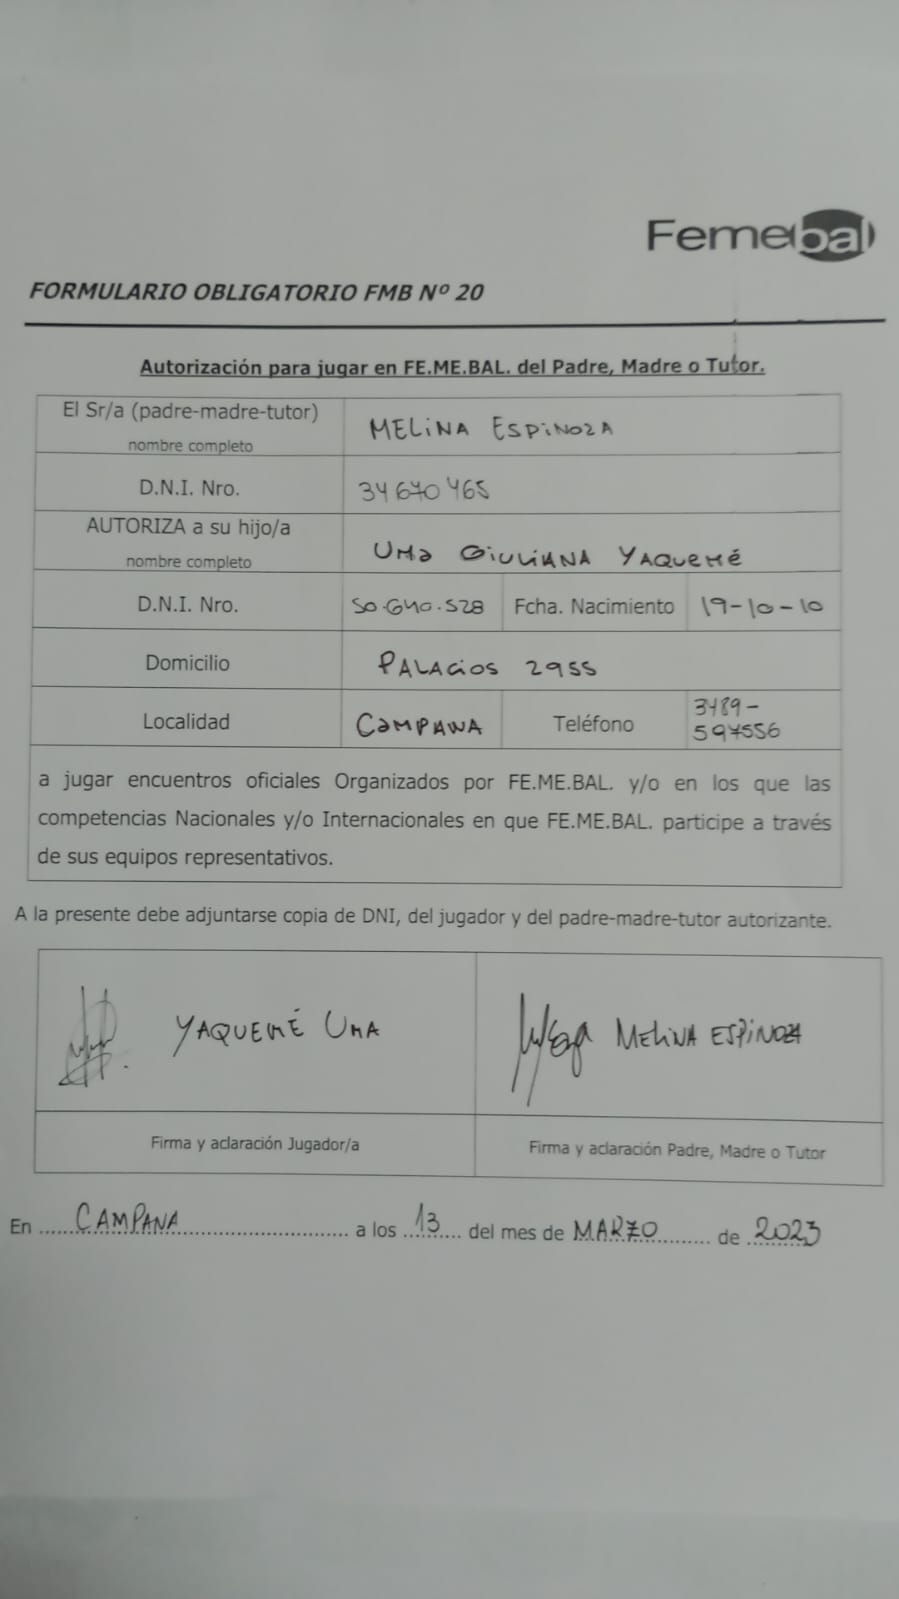 Femebal
FORMULARIO OBLIGATORIO FMB Nº 20
Autorización para jugar en FE.ME.BAL. del Padre, Madre o Tutor.
El Sr/a (padre-madre-tutor)
nombre completo
MELINA ESPINOZA
D.N.I. Nro.
34670465
AUTORIZA a su hijo/a
nombre completo
UMA GIULIANA YAQUEMÉ
D.N.I. Nro.
50.640.528
Fcha. Nacimiento
19-10-10
Domicilio
PALACIOS 2955
Localidad
CAMPANA
Teléfono
3489-
597556
a jugar encuentros oficiales Organizados por FE.ME.BAL. y/o en los que las
competencias Nacionales y/o Internacionales en que FE.ME.BAL. participe a través
de sus equipos representativos.
A la presente debe adjuntarse copia de DNI, del jugador y del padre-madre-tutor autorizante.
YAQUEMÉ UMA
MELINA ESPINOZA
Firma y aclaración Jugador/a
Firma y aclaración Padre, Madre o Tutor
En CAMPANA a los 13 del mes de MARZO de 2023